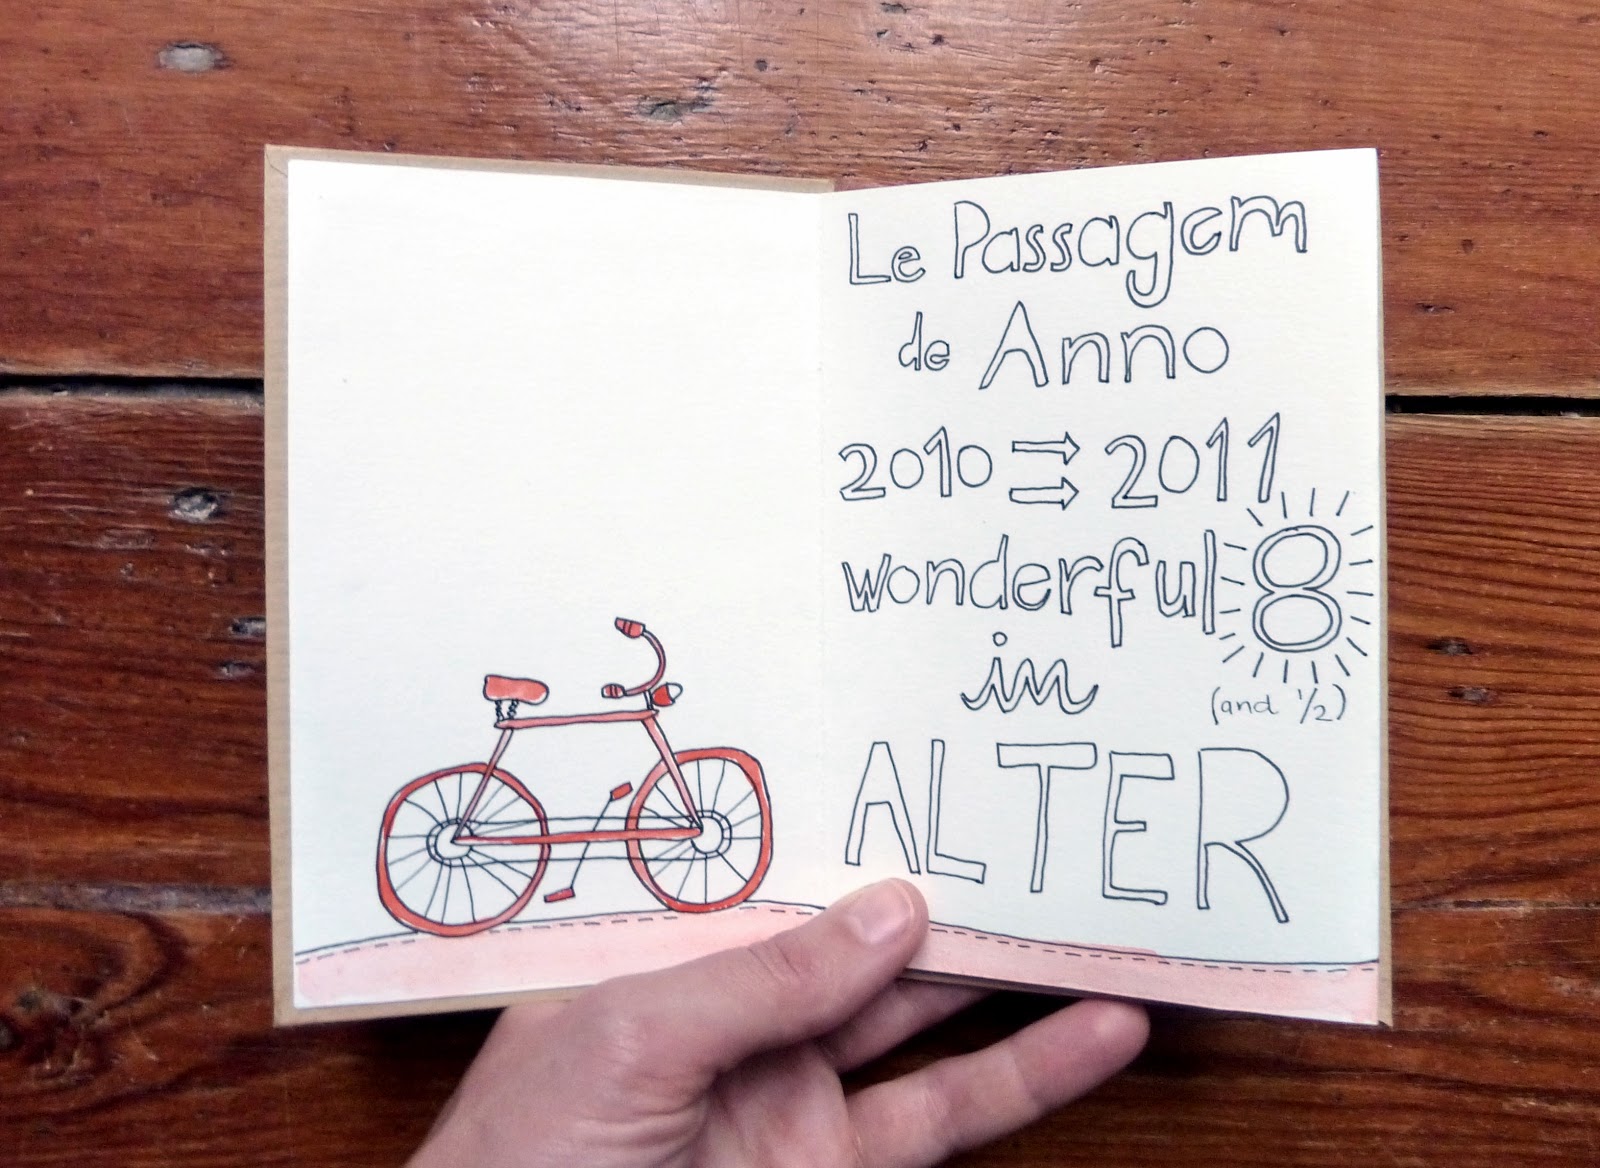 Le Passagem
de Anno
2010 ⇒ 2011
wonderful 8
in (and ½)
ALTER